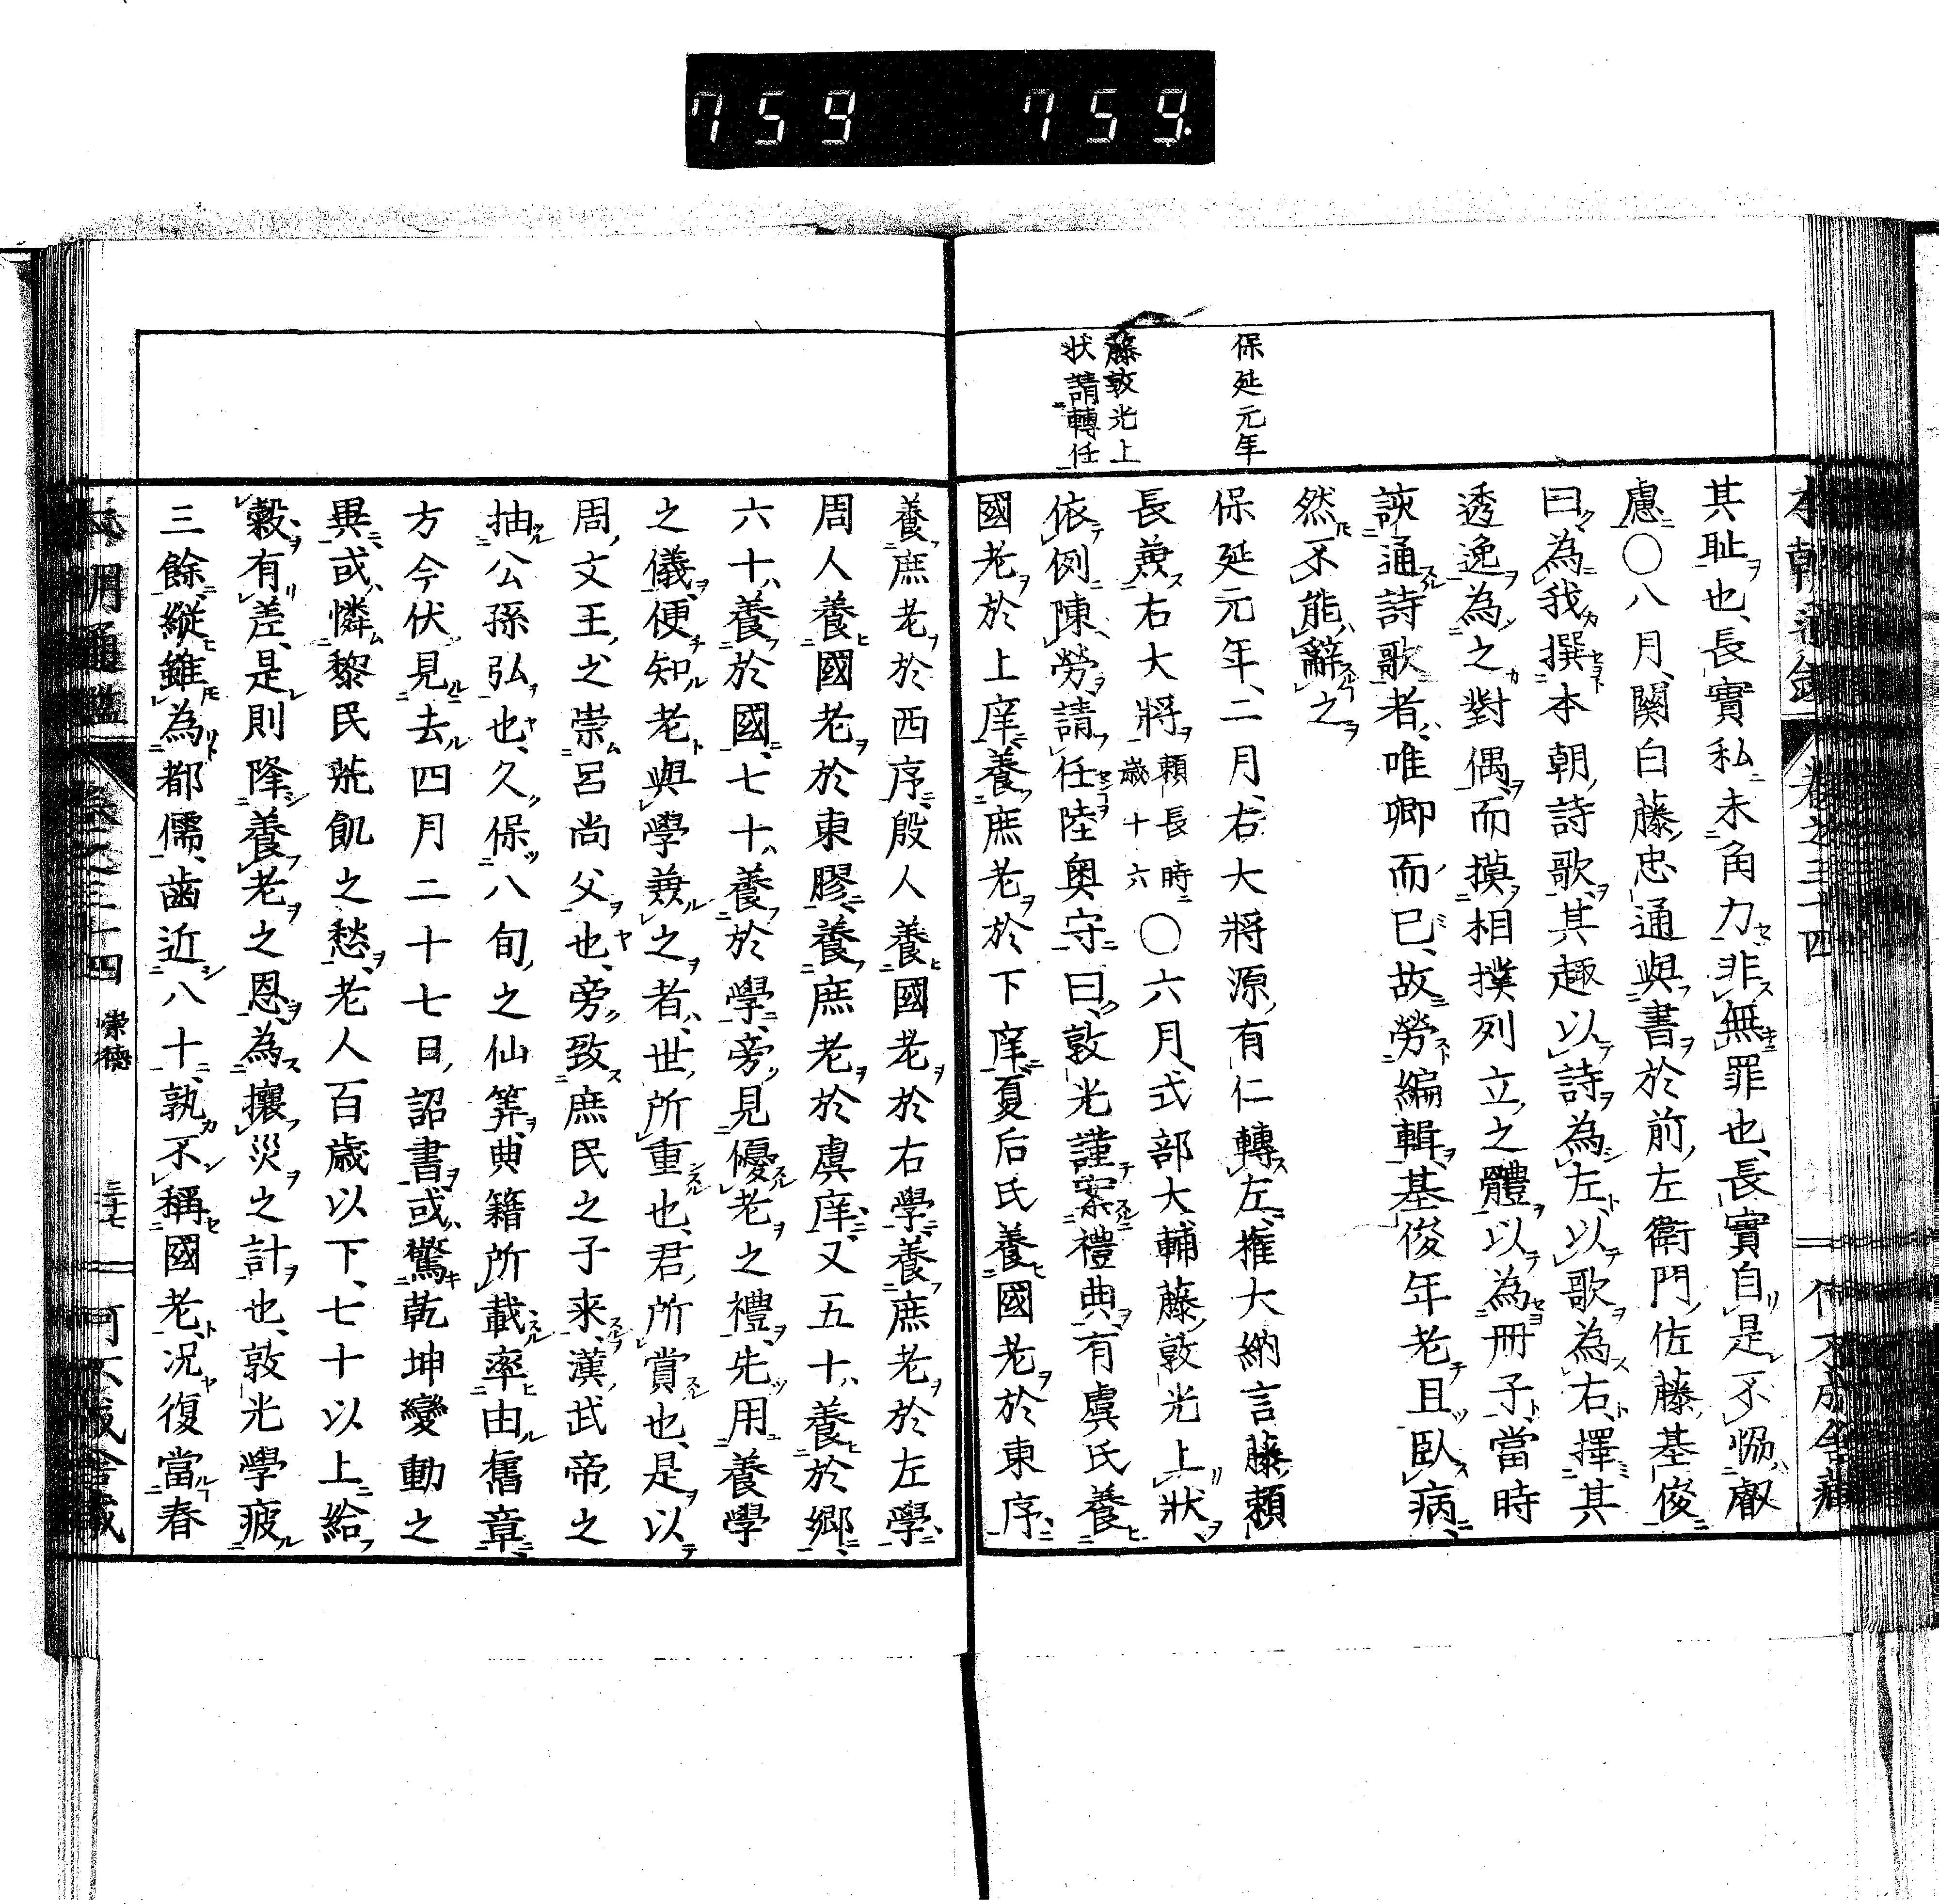 759 759.
本朝通鑑 卷之三十四
保延元年
藤敦光上
狀請轉任
其耻也、長實私未角力、非無罪也、長實自是不協叡
慮〇八月、關白藤忠通與書於前左衛門佐藤基俊
曰、為我撰本朝詩歌、其趣以詩為左、以歌為右、擇其
透逸為之對偶、而摸相撲列立之體、以為冊子、當時
諛通詩歌者、唯卿而已、故勞編輯、基俊年老且臥病、
然不能辭之
保延元年、二月、右大將源有仁轉左、權大納言藤賴
長兼右大將賴長時歲十六〇六月、式部大輔藤敦光上狀、
依例陳勞、請任陸奧守曰、敦光謹案禮典、有虞氏養
國老於上庠、養庶老於下庠、夏后氏養國老於東序、
養庶老於西序、殷人養國老於右學、養庶老於左學、
周人養國老於東膠、養庶老於虞庠、又五十、養於鄉、
六十、養於國、七十、養於學、旁見優老之禮、先用養學
之儀、便知老與學兼之者、世所重也、君所賞也、是以
周文王之崇呂尚父也、旁致庶民之子来、漢武帝之
抽公孫弘也、久保八旬之仙筭、典籍所載、率由舊章、
方今伏見去四月二十七日詔書、或驚乾坤變動之
異、或憐黎民荒飢之愁、老人百歲以下、七十以上、給
穀有差、是則降養老之恩、為攘災之計也、敦光學疲
三餘、縱雖為都儒、齒近八十、孰不稱國老、况復當春
卷之三十四 崇德 三十七